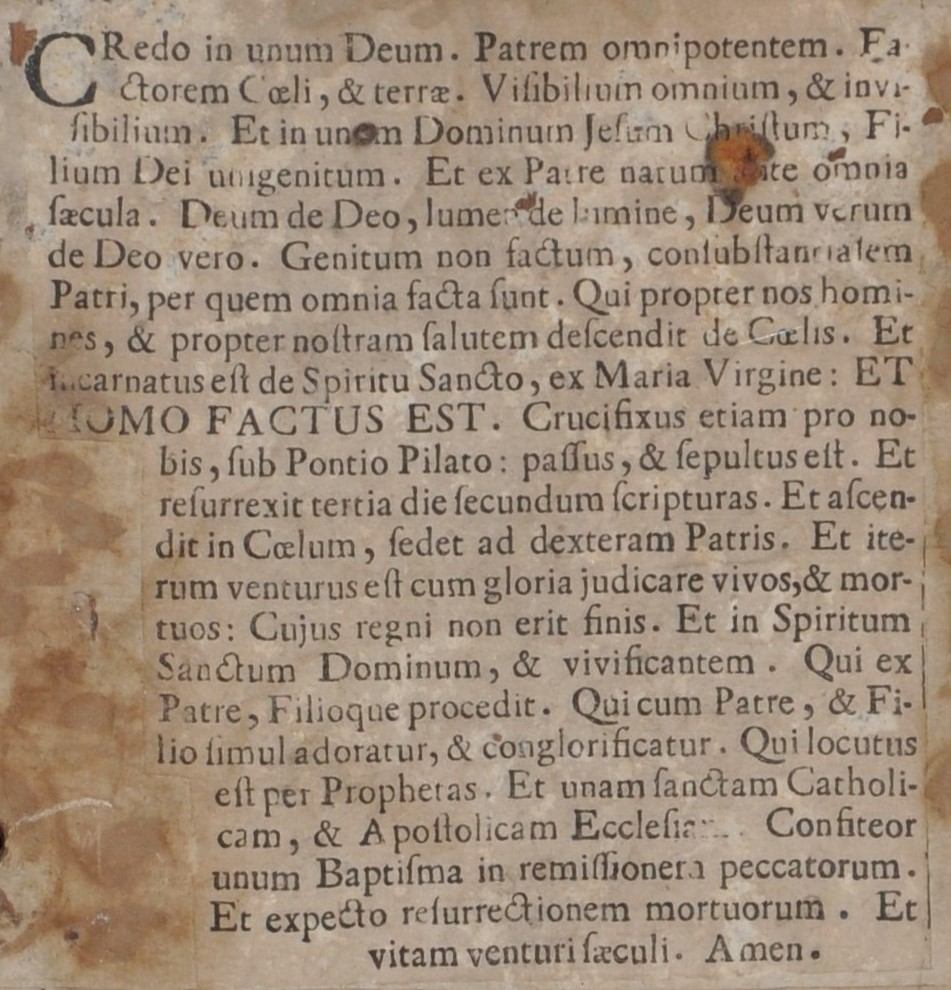 CRedo in unum Deum. Patrem omnipotentem. Fa-
ctorem Cœli, & terræ. Viſibilium omnium, & invi-
ſibilium. Et in unum Dominum Jeſum Chriſtum, Fi-
lium Dei unigenitum. Et ex Patre natum ante omnia
ſæcula. Deum de Deo, lumen de lumine, Deum verum
de Deo vero. Genitum non factum, conſubſtantialem
Patri, per quem omnia facta ſunt. Qui propter nos homi-
nes, & propter noſtram ſalutem deſcendit de Cœlis. Et
incarnatus eſt de Spiritu Sancto, ex Maria Virgine: ET
HOMO FACTUS EST. Crucifixus etiam pro no-
bis, ſub Pontio Pilato: paſſus, & ſepultus eſt. Et
reſurrexit tertia die ſecundum ſcripturas. Et aſcen-
dit in Cœlum, ſedet ad dexteram Patris. Et ite-
rum venturus eſt cum gloria judicare vivos, & mor-
tuos: Cujus regni non erit finis. Et in Spiritum
Sanctum Dominum, & vivificantem. Qui ex
Patre, Filioque procedit. Qui cum Patre, & Fi-
lio ſimul adoratur, & conglorificatur. Qui locutus
eſt per Prophetas. Et unam ſanctam Catholi-
cam, & Apoſtolicam Eccleſiam. Confiteor
unum Baptiſma in remiſſionem peccatorum.
Et expecto reſurrectionem mortuorum. Et
vitam venturi ſæculi. Amen.